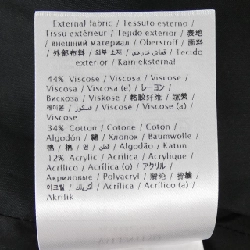 External fabric / Tessuto esterno /
Tissu extérieur / Tejido exterior / 表地
/ внешний материал / Oberstoff / 面料
/ 外部布料 / 겉감 / Tecido
exterior / Kain eksternal
44% Viscose / Viscosa / Viscose /
Viscosa / Viscosa (e) / レーヨン /
Вискоза / Viskose / 粘胶纤维 /
/ Viscose / Viscose (a) /
Viscosa
34% Cotton / Cotone / Coton /
Algodón / 綿 / Хлопок / Baumwolle /
棉 / 棉 / 면 / Algodão / Katun
12% Acrylic / Acrilica / Acrylique /
Acrílico / Acrílico (a) / アクリル /
Акриловые / Polyacryl /
아크릴 / Acrílica / Acrílico (a) /
Akrilik